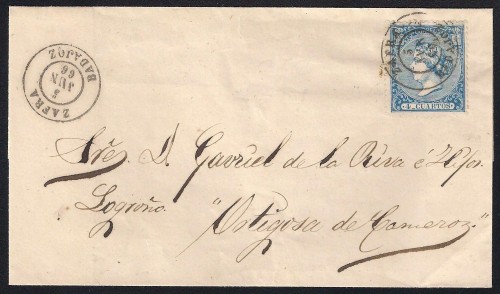 ZAFRA
5
JUN
66
BADAJOZ
4 CUARTOS
Sres. D. Gavriel de la Riva é Hijos.
Logroño.
"Ortigosa de Cameros."